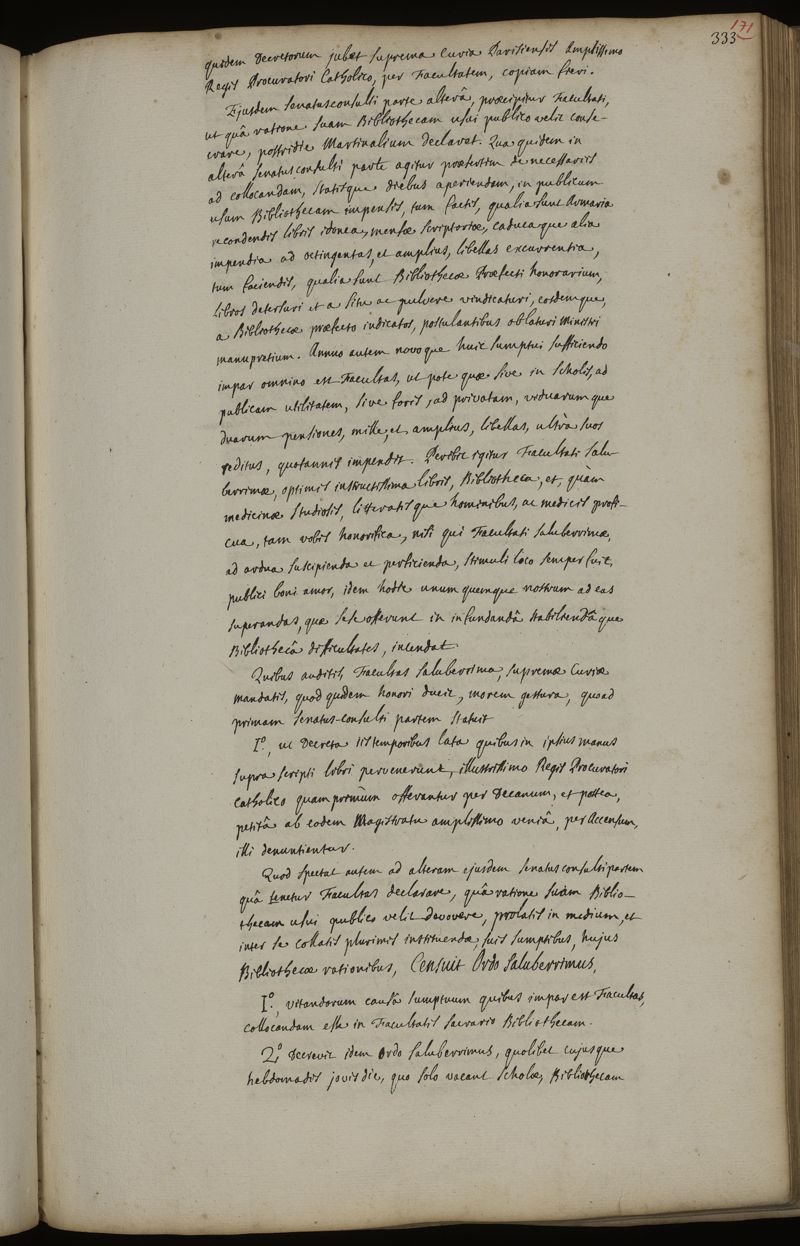 171
333
quidem Decretorum jubet suprema Curia Parisiensis Amplissimo
Regis Procuratori Catholico, per Facultatem, copiam fieri.
Ejusdem senatusconsulti parte alterâ, præcipitur Facultati,
ut quâ ratione suam Bibliothecam usui publico velit conse-
crare, postridie Martinalium declaret. Qua quidem in
alterâ senatusconsulti parte agitur præsertim de necessariis
ad collocandam, statisque diebus aperiendam, in publicum
usum Bibliothecam impensis, tum factis, qualia sunt Armaria
recondendis libris idonea, mensæ scriptoriæ, caducaque alia
impendia ad octingentas, et amplius, libellas excurrentia,
tum faciendis, qualia sunt Bibliothecæ Præfecti honorarium,
libros detersuri et a situ ac pulvere vindicaturi, eosdemque,
a Bibliothecæ præfecto indicatos, postulantibus oblaturi Ministri
manupretium. Annuo autem novoque huic sumptui sufficiendo
impar omnino est Facultas, ut pote quæ sive in scholis, ad
publicam utilitatem, sive foris, ad privatam, viduarumque
duarum pensiones, mille, et amplius, libellas, ultrà suos
reditus, quotannis impendit. Peribit igitur Facultati Salu-
berrimæ, optimis instructissima libris, Bibliotheca, et, quàm
medicinæ studiosis, litteratisque hominibus, ac medicis profi-
cua, tam vobis honorifica, nisi qui Facultati saluberrimæ,
ad ardua suscipienda et perficienda, stimuli loco semper fuit,
publici boni amor, idem hodie unumquemque nostrum ad eas
superandas, quæ sese offerunt in infundandâ stabiliendâque
Bibliothecâ difficultates, incendat.
Quibus auditis Facultas saluberrima, supremæ Curiæ
mandatis, quod quidem honori ducit, morem gestura, quoad
primam senatus-consulti partem statuit
1.º, ut Decreta iis temporibus lata quibus in ipsius manus
supra scripti libri pervenerunt, illustrissimo Regis Procuratori
Catholico quamprimùm offerantur per Decanum, et postea,
petitâ ab eodem Magistratu amplissimo veniâ, per Accensum,
illi denuntientur.
Quod spectat autem ad alteram ejusdem senatusconsulti partem
quâ tenetur Facultas declarare, quâ ratione suam Biblio-
thecam usui publico velit devovere, prolatis in medium, et
inter se collatis plurimis instituendæ, suis sumptibus, hujus
Bibliothecæ rationibus, Censuit Ordo Saluberrimus,
1.º, vitandorum causâ sumptuum quibus impar est Facultas,
collocandam esse in Facultatis sacrario Bibliothecam.
2.º Decrevit idem ordo saluberrimus, quolibet cujusque
hebdomadis jovis die, quo solo vacant scholæ, Bibliothecam